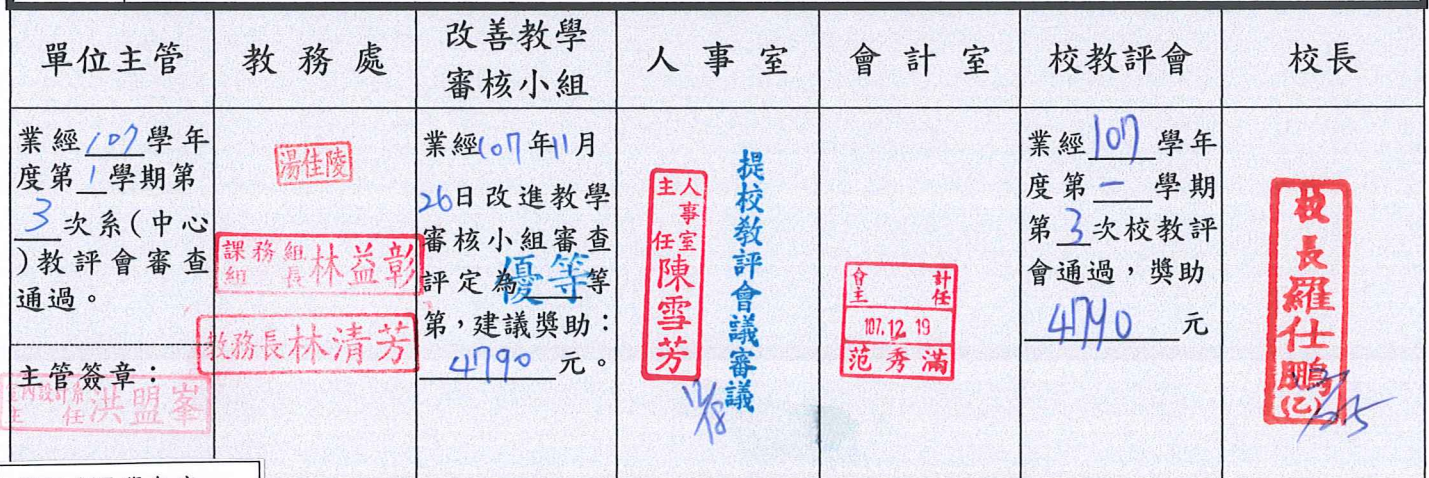 單位主管
教務處
改善教學
審核小組
人事室
會計室
校教評會
校長
業經107學年
度第1學期第
3次系(中心
)教評會審查
通過。
主管簽章:
室內設計系
主任洪盟峯
湯佳陵
課務組
組長林益彰
教務長林清芳
業經107年11月
26日改進教學
審核小組審查
評定為優等等
第,建議獎助:
4790元。
人事室
主任陳雪芳
12/18
提校教評會議審議
會計
主任
107.12.19
范秀滿
業經107學年
度第一學期
第3次校教評
會通過,獎助
4790元
校長羅仕鵬(乙)
12/25